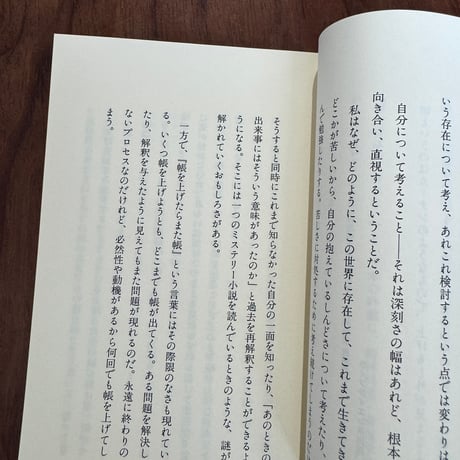 いう存在について考え、あれこれ検討するという点では変わりは
自分について考えること――それは深刻さの幅はあれど、根本
向き合い、直視するということだ。
私はなぜ、どのように、この世界に存在して、これまで生きてき
どこかが苦しいから、自分の抱えているしんどさについて考えたり、
んで勉強したりする。苦しさに対処するために考え続けてしまうのだ
そうすると同時にこれまで知らなかった自分の一面を知ったり、「あのときの
出来事にはそういう意味があったのか」と過去を再解釈することができるよ
うになる。そこには一つのミステリー小説を読んでいるときのような、謎が
解かれていくおもしろさがある。
一方で、「帳を上げたらまた帳」という言葉にはその際限のなさも現れてい
る。いくつ帳を上げようとも、どこまでも帳が出てくる。ある問題を解決し
たり、解釈を与えたように見えてもまた問題が現れるのだ。永遠に終わりの
ないプロセスなのだけれど、必然性や動機があるから何回でも帳を上げてし
まう。